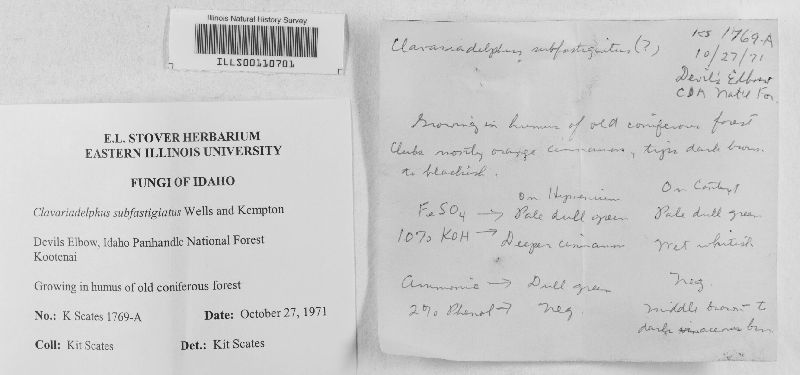 Illinois Natural History Survey
ILLS00110701
E.L. STOVER HERBARIUM
EASTERN ILLINOIS UNIVERSITY
FUNGI OF IDAHO
Clavariadelphus subfastigiatus Wells and Kempton
Devils Elbow, Idaho Panhandle National Forest
Kootenai
Growing in humus of old coniferous forest
No.: K Scates 1769-A Date: October 27, 1971
Coll: Kit Scates Det.: Kit Scates
KS 1769-A
Clavariadelphus subfastigiatus (?)
10/27/71
Devil's Elbow
CDA Nat'l For.
Growing in humus of old coniferous forest
Clubs mostly orange cinnamon, tips dark brown
to blackish.
On Hymenium On Context
FeSO4 → Pale dull green Pale dull green
10% KOH → Deeper cinnamon Wet whitish
Ammonia → Dull green Neg.
2% Phenol → Neg. Middle brown to
dark vinaceous brn